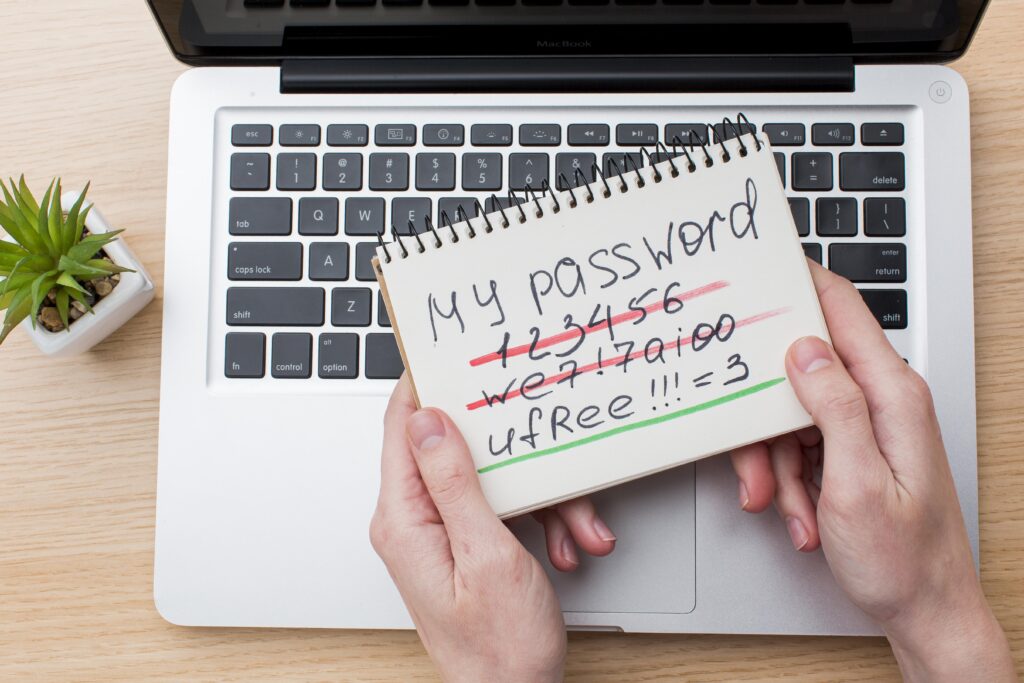 MacBook
esc F1 F2 F3 F4 F5 F6 F7 F8 F10 F11 F12
~ ` ! 1 @ 2 # 3 $ 4 % 5 ^ 6 & + = delete
tab Q W E { [ } ] | \
caps lock A enter return
shift Z shift
fn control alt option
My password
123456
we7!7aioo
ufRee!!!=3